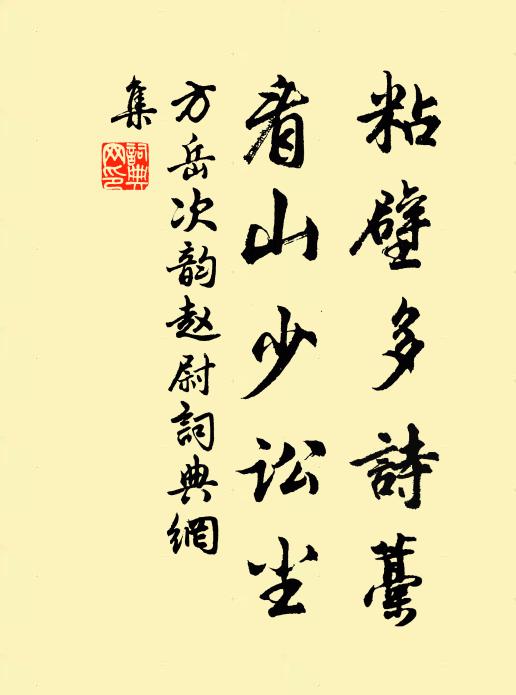 粘壁多詩藁
看山少讼尘
方岳次韵赵尉詞典網
集
詞典网印